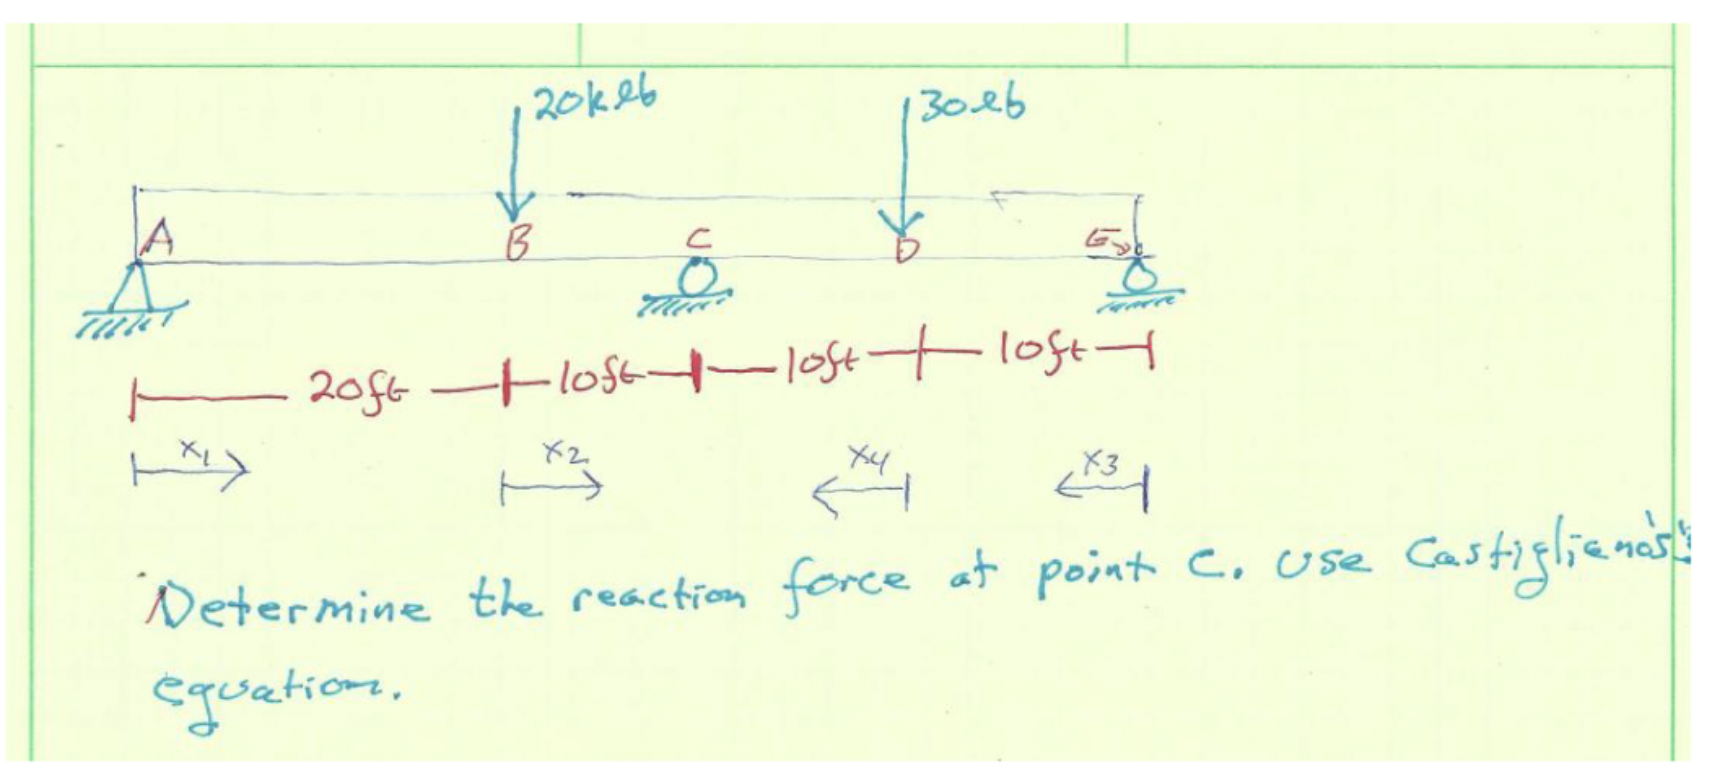 20klb 30lb
A B C D E
20ft 10ft 10ft 10ft
x1 x2 x4 x3
Determine the reaction force at point C. Use Castigliano's
equation.